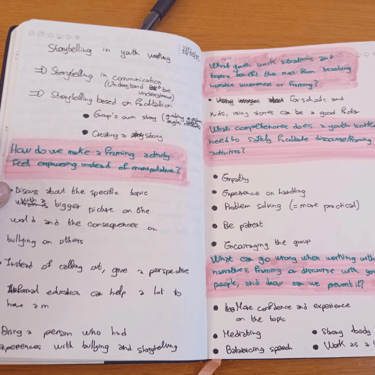 Storytelling in youth working
=> Storytelling in communication
(Understand & be
understood)
=> Storytelling based on facilitation
• Group's own story
• Creating a story
How do we make a framing activity
feel empowering instead of manipulative?
• Discuss about the specific topic
with bigger picture on the
world and the consequences on
bullying on others
• Instead of calling out, give a perspective
Informal education can help a lot to
have a m
Bring a person who had
experiences with bullying and storytelling
What youth work situations and
topics benefit the most from teaching
narrative awareness or framing?
• For schools and
kids, using stories can be a good
What competences does a youth worker
need to safely facilitate discourse/framing
activities?
• Empathy
• Experience on handling
• Problem solving (= more practical)
• Be patient
• Encouraging the group
What can go wrong when working with
narratives, framing or discourse with young
people, and how can we prevent it?
• More confidence and experience
on the topic
• Mediating
• Strong body
• Balancing speech
• Work as a